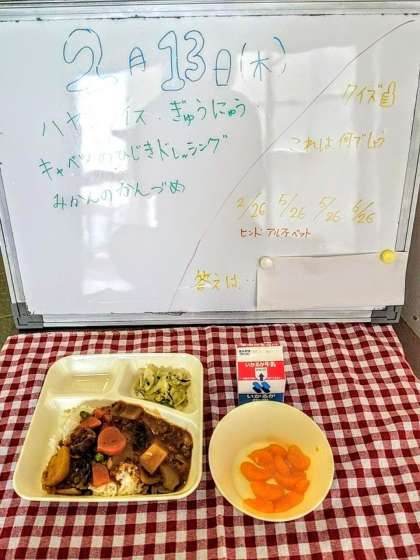 2月13日(木)
ハヤシライス ぎゅうにゅう
キャベツのひじきドレッシング
みかんのかんづめ
クイズ
これは何でしょう
2/26 5/26 5/26 6/26
ヒント:アルファベット
答えは…
いかるが牛乳
いかるが